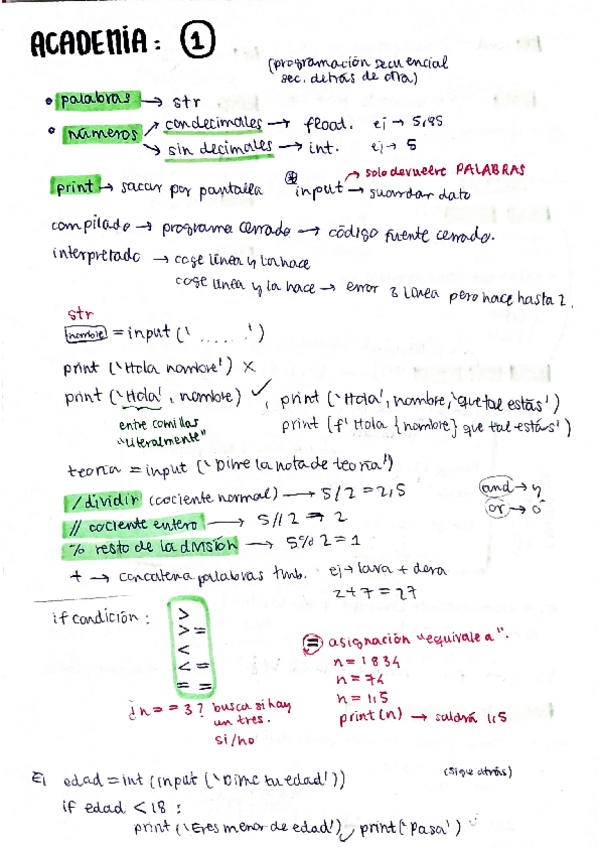 ACADEMIA: 1
(programación secuencial
sec. detrás de otra)
• palabras → str
• números → con decimales → float. ej → 5,85
→ sin decimales → int. ej → 5
→ solo devuelve PALABRAS
print → sacar por pantalla * input → guardar dato
compilado → programa cerrado → código fuente cerrado.
interpretado → coge línea y la hace
coge línea y la hace → error 3 línea pero hace hasta 2.
str
nombre = input ('......')
print ('Hola nombre') x
print ('Hola', nombre) ✓, print ('Hola', nombre, 'que tal estás')
entre comillas
"literalmente"
print (f' Hola {nombre} que tal estás')
teoría = input ('Dime la nota de teoría')
/ dividir (cociente normal) → 5/2 = 2,5
and → y
// cociente entero → 5//2 → 2
or → o
% resto de la división → 5%2 = 1
+ → concatena palabras tmb. ej → lava + dora
2+7 = 27
if condición:
>
>=
<
<=
==
= asignación "equivale a".
n = 1834
n = 74
n = 1,5
print(n) → saldrá 1,5
¿n == 3? busca si hay
un tres.
si/no
(sigue atrás)
Ej edad = int (input ('Dime tu edad'))
if edad < 18 :
print ('Eres menor de edad') print ('Pasa')